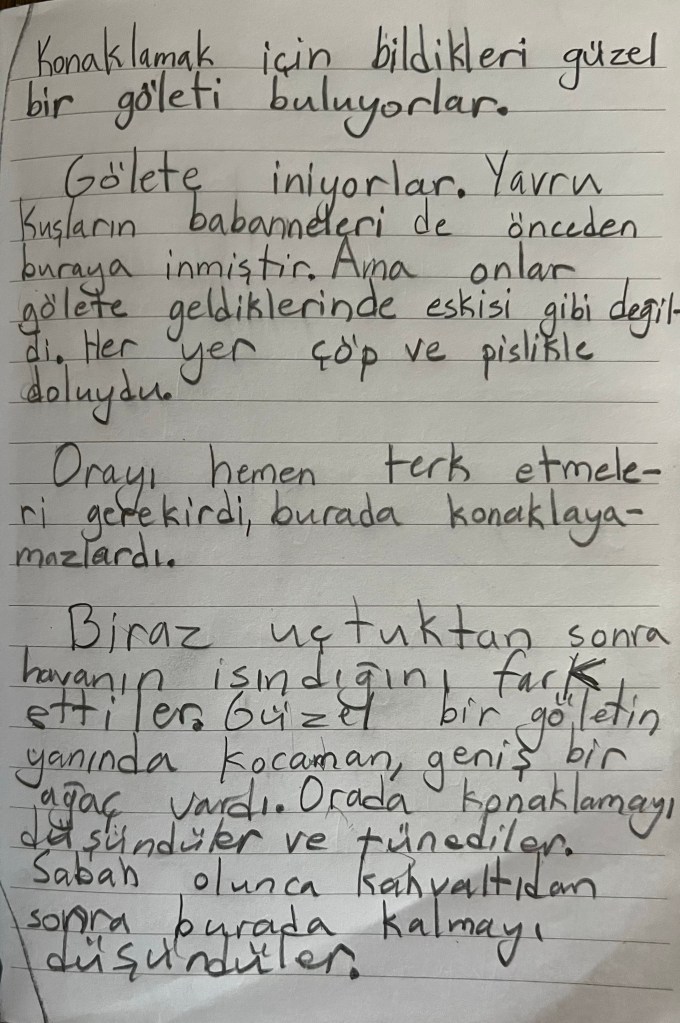 Konaklamak için bildikleri güzel
bir göleti buluyorlar.
Gölete iniyorlar. Yavru
kuşların babanneleri de önceden
buraya inmiştir. Ama onlar
gölete geldiklerinde eskisi gibi değil-
di. Her yer çöp ve pislikle
doluydu.
Orayı hemen terk etmele-
ri gerekirdi, burada konaklaya-
mazlardı.
Biraz uçtuktan sonra
havanın ısındığını fark
ettiler. Güzel bir göletin
yanında kocaman, geniş bir
ağaç vardı. Orada konaklamayı
düşündüler ve tünediler.
Sabah olunca kahvaltıdan
sonra burada kalmayı
düşündüler.